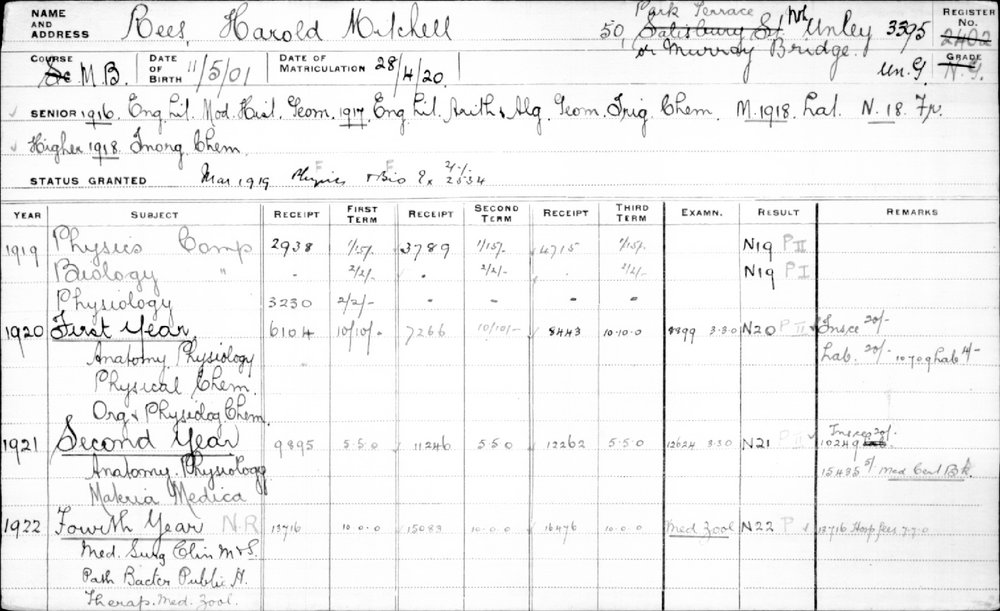 NAME AND ADDRESS Rees, Harold Mitchell 50, Salisbury St Park Terrace Unley 3395 REGISTER No. 2402
or Murray Bridge.
COURSE Sc M.B. DATE OF BIRTH 11/5/01 DATE OF MATRICULATION 28/4/20 Un.G GRADE N.G.
SENIOR 1916. Eng. Lit. Mod. Hist. Geom. 1917. Eng. Lit. Arith & Alg. Geom. Trig. Chem. M. 1918. Lat. N. 18. Fr.
Higher 1918. Inorg Chem.
STATUS GRANTED Mar 1919 Physics & Bio
YEAR SUBJECT RECEIPT FIRST TERM RECEIPT SECOND TERM RECEIPT THIRD TERM EXAMN. RESULT REMARKS
1919 Physics Comp 2938 1/15/- 3789 1/15/- 4715 1/15/- N19 P II
Biology " - 2/2/- - 2/2/- - 2/2/- N19 P I
Physiology 3230 2/2/- - - - -
1920 First Year 6104 10/10/- 7266 10/10/- 8443 10-10-0 8899 3-3-0 N20 P II Insce 20/-
Anatomy. Physiology Lab. 20/- 10709 Lab 4/-
Physical Chem.
Org & Physiolog Chem.
1921 Second Year 9895 5-5-0 11246 5-5-0 12262 5-5-0 12624 3-3-0 N21 P II 10249 20/-
Anatomy. Physiology 15485 5/ Med Cert Bk
Materia Medica
1922 Fourth Year N.R 13716 10-0-0 15083 10-0-0 16476 10-0-0 Med Zool N22 P 13716 Hosp fees 7-7-0
Med. Surg Clin M & S.
Path Bacter Public H.
Therap. Med. Zool.